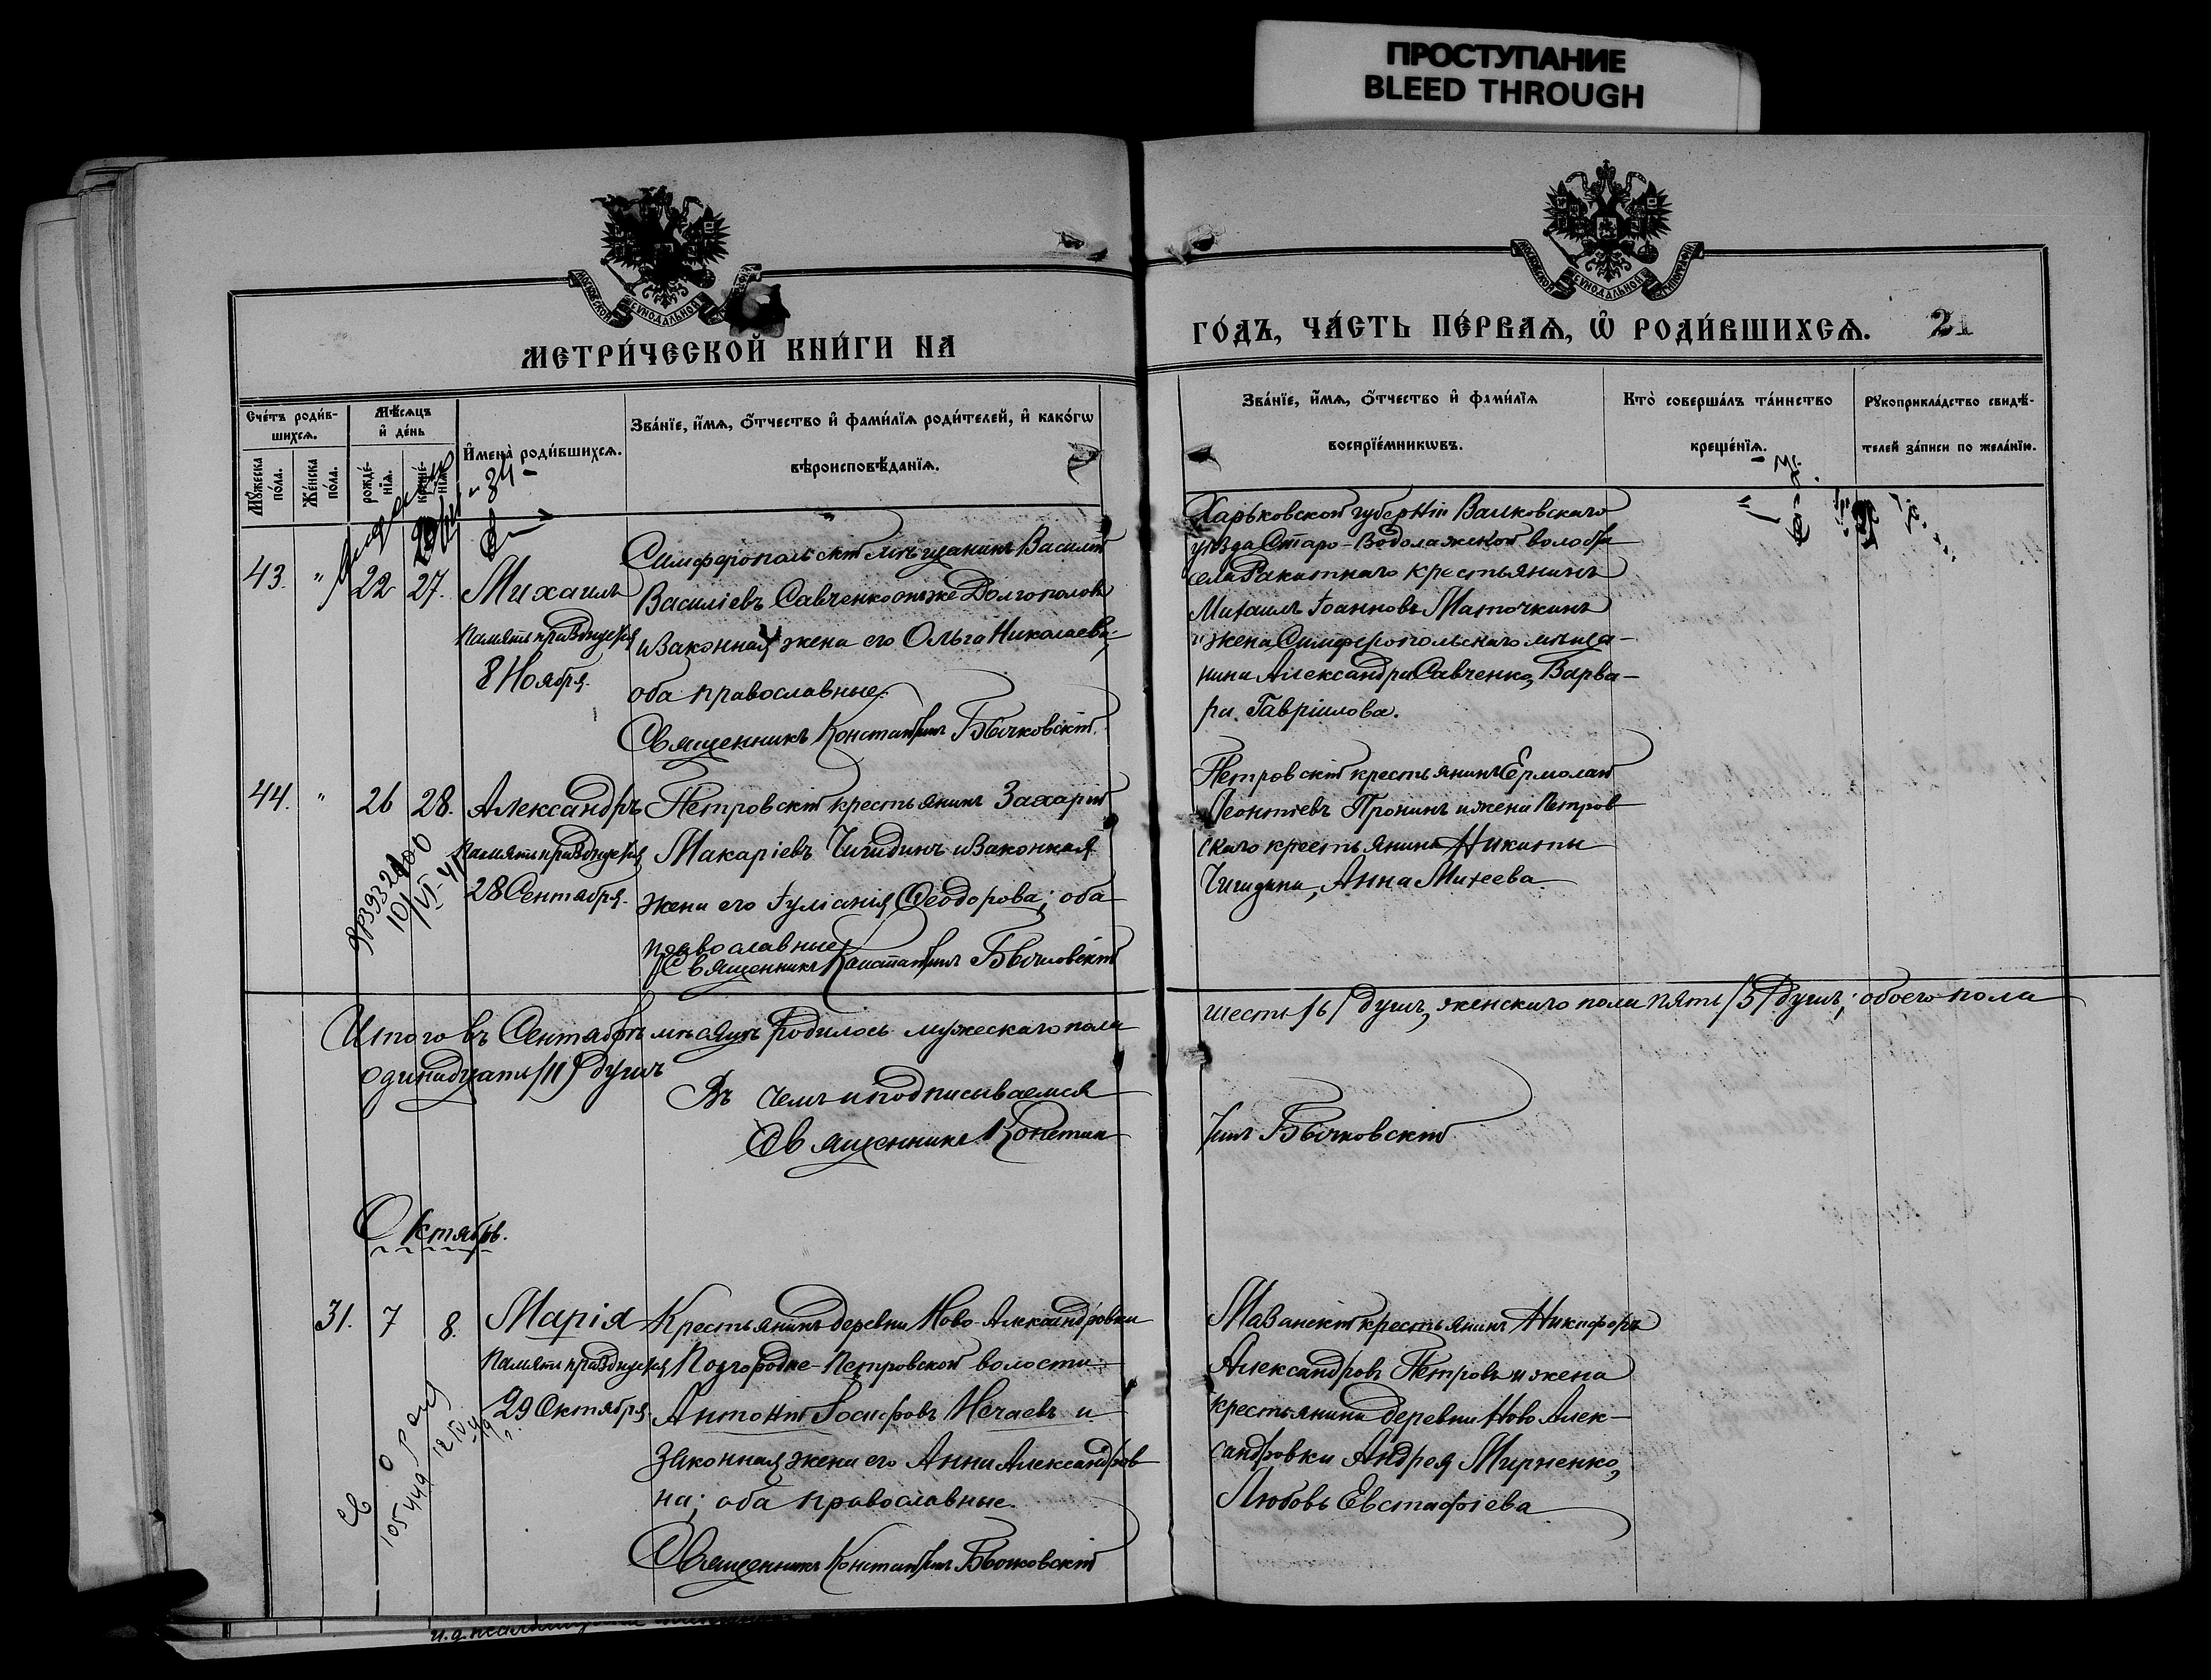 ПРОСТУПАНИЕ
BLEED THROUGH
МОСКОВСКОЙ СѴНОДАЛЬНОЙ
МОСКОВСКОЙ СѴНОДАЛЬНОЙ ТИПОГРАФІИ
МЕТРИ́ЧЕСКОЙ КНИ́ГИ НА
ГО́ДЪ, ЧА́СТЬ ПЕ́РВАѦ, Ѡ҆ РОДИ́ВШИХСѦ. 21
Сче́тъ роди́в-
шихсѧ.
Мѣ́сѧцъ
и҆ де́нь
Мꙋ́жеска по́ла.
Же́нска по́ла.
рожде́-
нїѧ.
креще́-
нїѧ.
И҆мена̀ роди́вшихсѧ.
Зва́нїе, и҆́мѧ, ѻ҆́тчество и҆ фами́лїѧ роди́телей, и҆ како́гѡ
вѣроисповѣ́данїѧ.
Зва́нїе, и҆́мѧ, ѻ҆́тчество и҆ фами́лїѧ
воспрїе́мникѡвъ.
Кто̀ соверша́лъ та́инство
креще́нїѧ.
Рꙋкоприкла́дство свидѣ́-
телей за́писи по жела́нїю.
43. " 22 27. Михаилъ
Память празднуется
8 Ноября.
Симферопольскій мѣщанинъ Василій
Василіевъ Савченко онъ же Долгополовъ
и законная жена его Ольга Николаева;
оба православные.
Священникъ Константинъ Бычковскій.
Харьковской губерніи Валковскаго
уѣзда Старо-Водолажской волости
села Ракитнаго крестьянинъ
Михаилъ Іоанновъ Маточкинъ
и жена Симферопольскаго мѣща-
нина Александра Савченко, Варва-
ра Гавріилова.
44. " 26 28. Александръ
Память празднуется
28 Сентября.
Петровскій крестьянинъ Захарій
Макаріевъ Чигидинъ и законная
жена его Іуліанія Ѳеодорова; оба
православные
Священникъ Константинъ Бычковскій
Петровскій крестьянинъ Ермолай
Леонтіевъ Пронинъ и жена Петров
скаго крестьянина Никиты
Чигидина, Анна Михеева.
10/VI-41
Итого въ Сентябрѣ мѣсяцѣ родилось мужескаго пола
шесть /6/ душъ, женскаго пола пять /5/ душъ; обоего пола
одинадцать /11/ душъ
Въ чемъ и подписываемся
Священникъ Констан
тинъ Бычковскій
Октябрь.
31. 7 8. Марія
Память празднуется
29 Октября.
Крестьянинъ деревни Ново-Александровки
Подгородне-Петровской волости
Антоній Іосифовъ Нечаевъ и
законная жена его Анна Александров
на; оба православные
Священникъ Константинъ Бычковскій
Мазанскій крестьянинъ Никифоръ
Александровъ Петровъ и жена
крестьянина деревни Ново Алек-
сандровки Андрея Мирненко,
Любовь Евстафіева